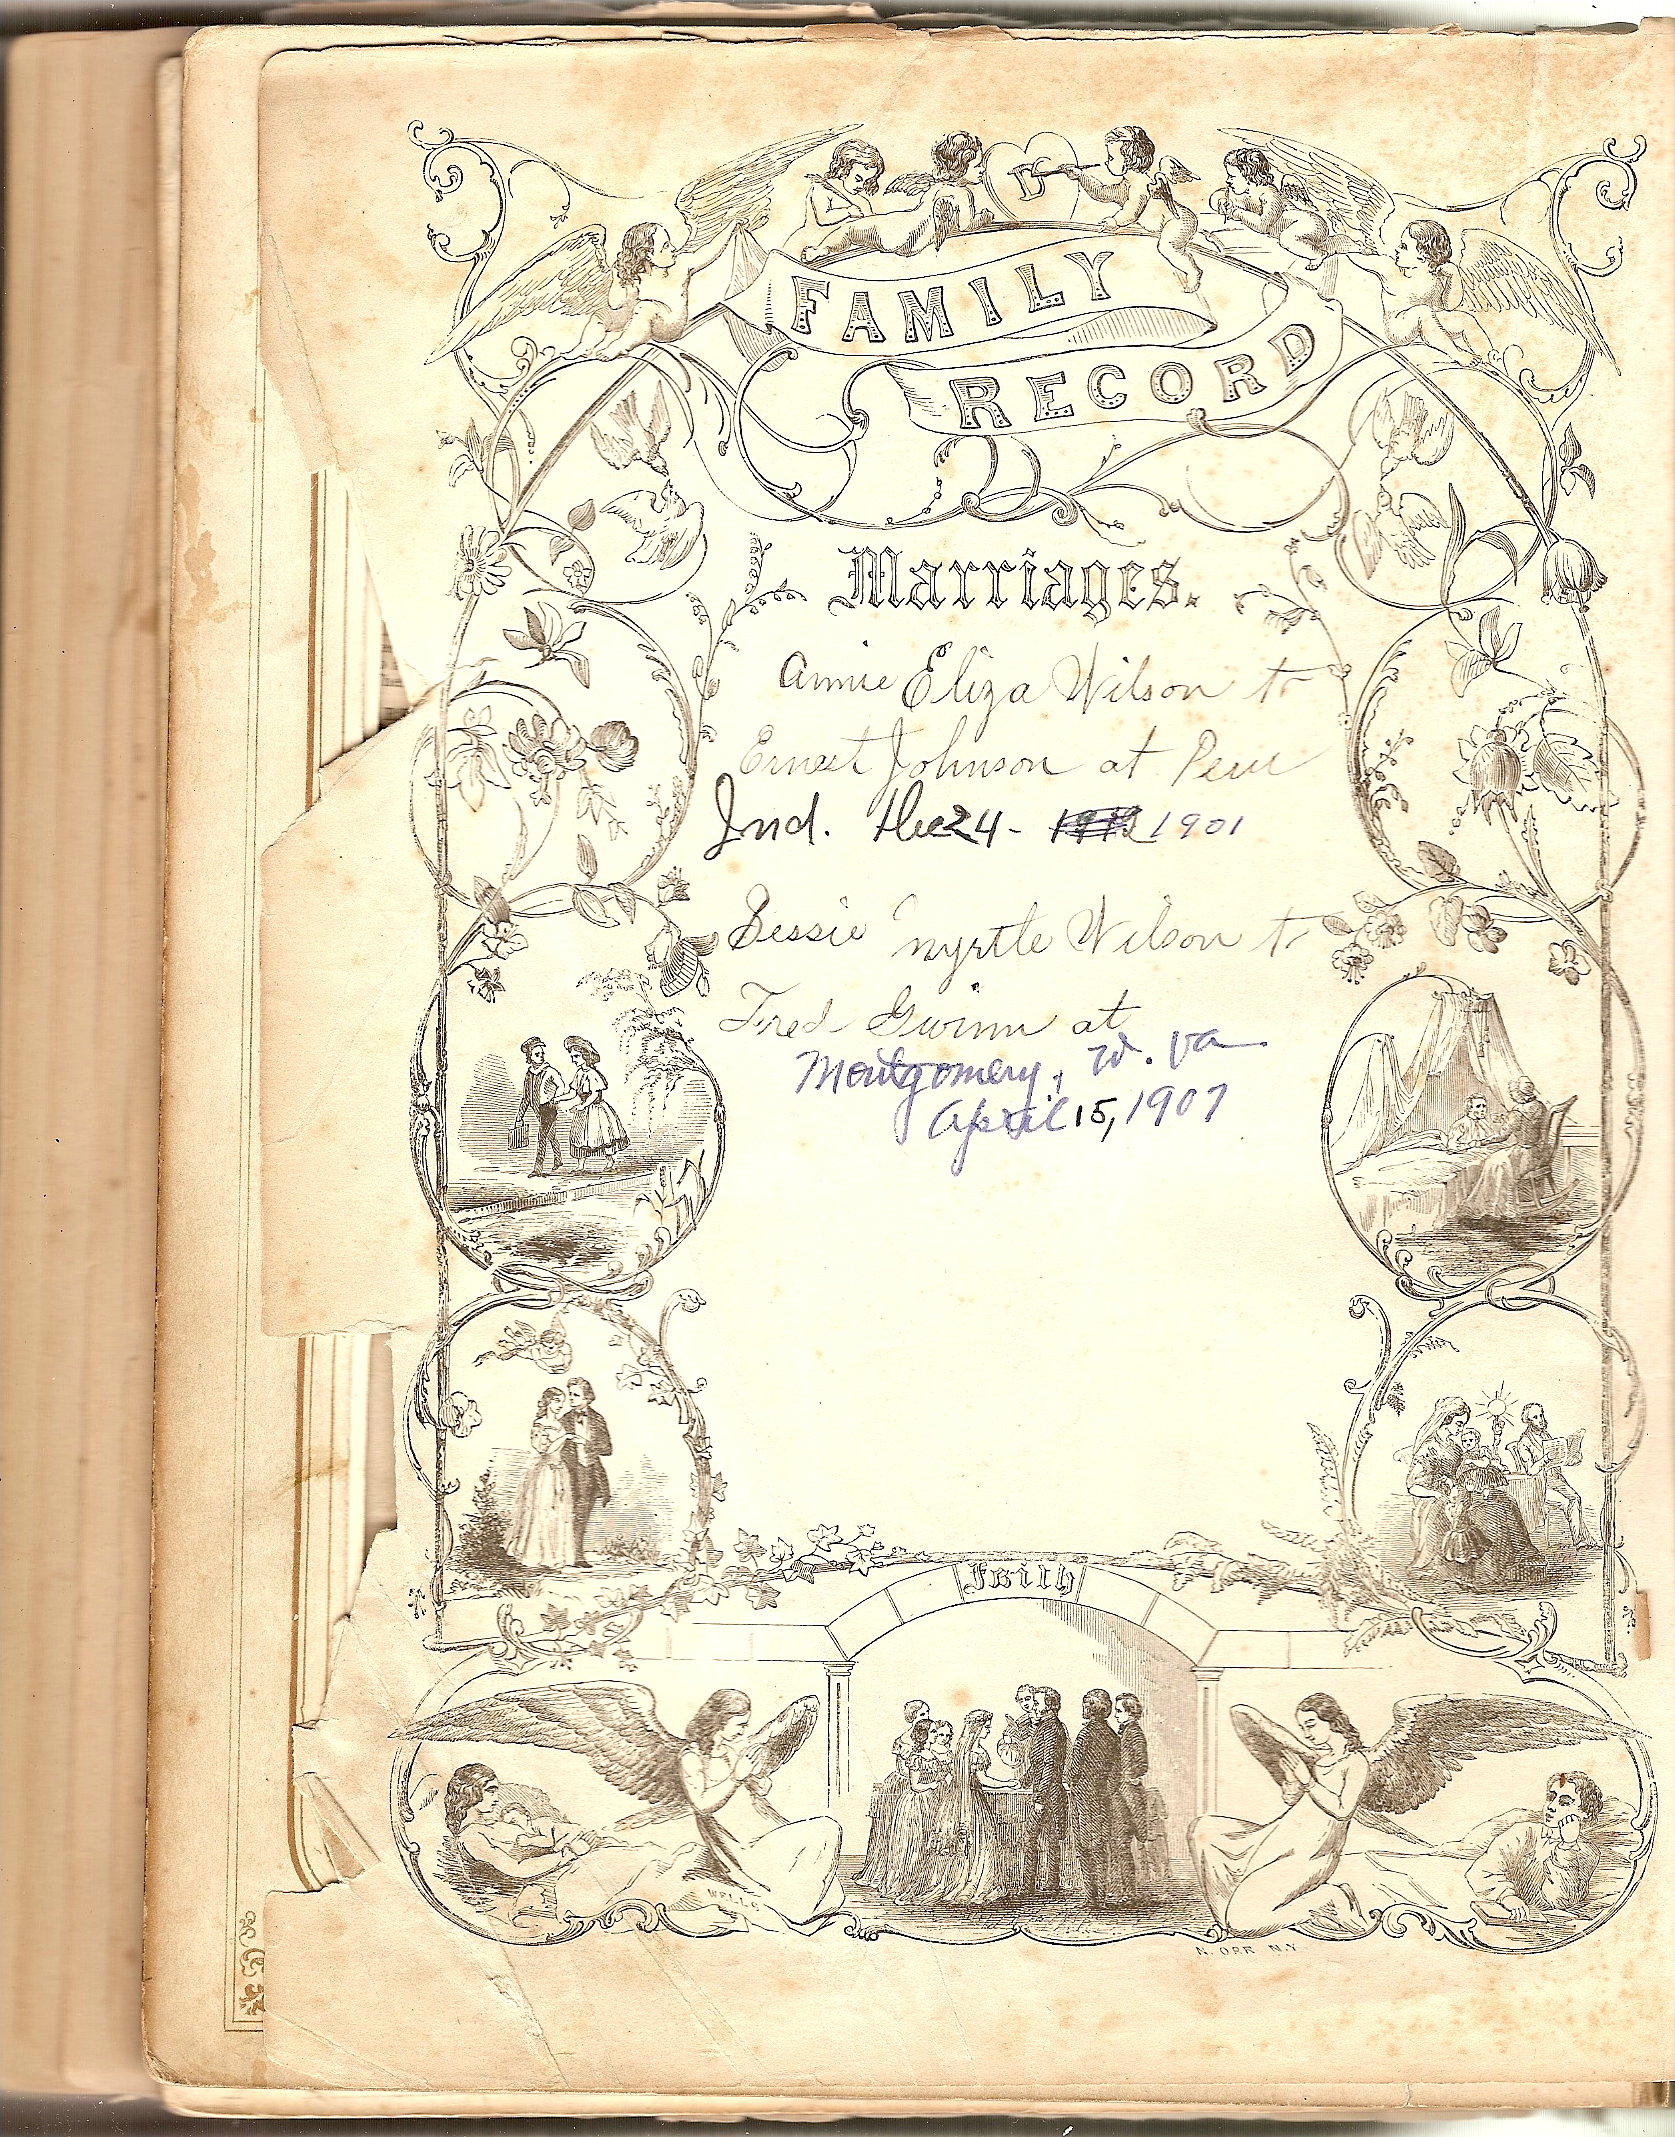 D
FAMILY
RECORD
Marriages.
Annie Eliza Wilson to
Ernest Johnson at Peru
Ind. Dec 24 - 1901
Bessie Myrtle Wilson to
Fred Gwinn at
Montgomery, W. Va
April 15, 1907
Faith
WELLS
N. ORR N.Y